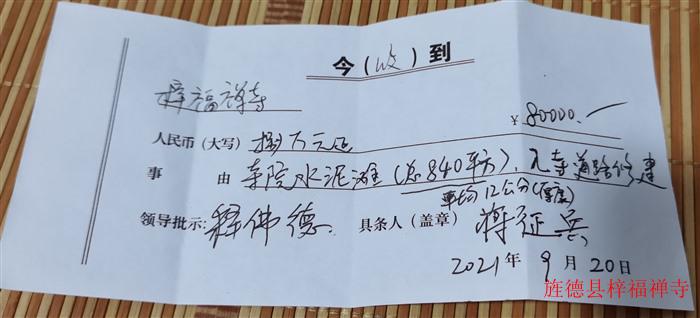 今（收）到
梓福禅寺
￥80000.—
人民币（大写）捌万元正
事 由 寺院水泥滩（总840平方），元寺道路修建
平均12公分（厚度）
领导批示：释佛德 具条人（盖章）蒋延兵
2021年9月20日
旌德县梓福禅寺